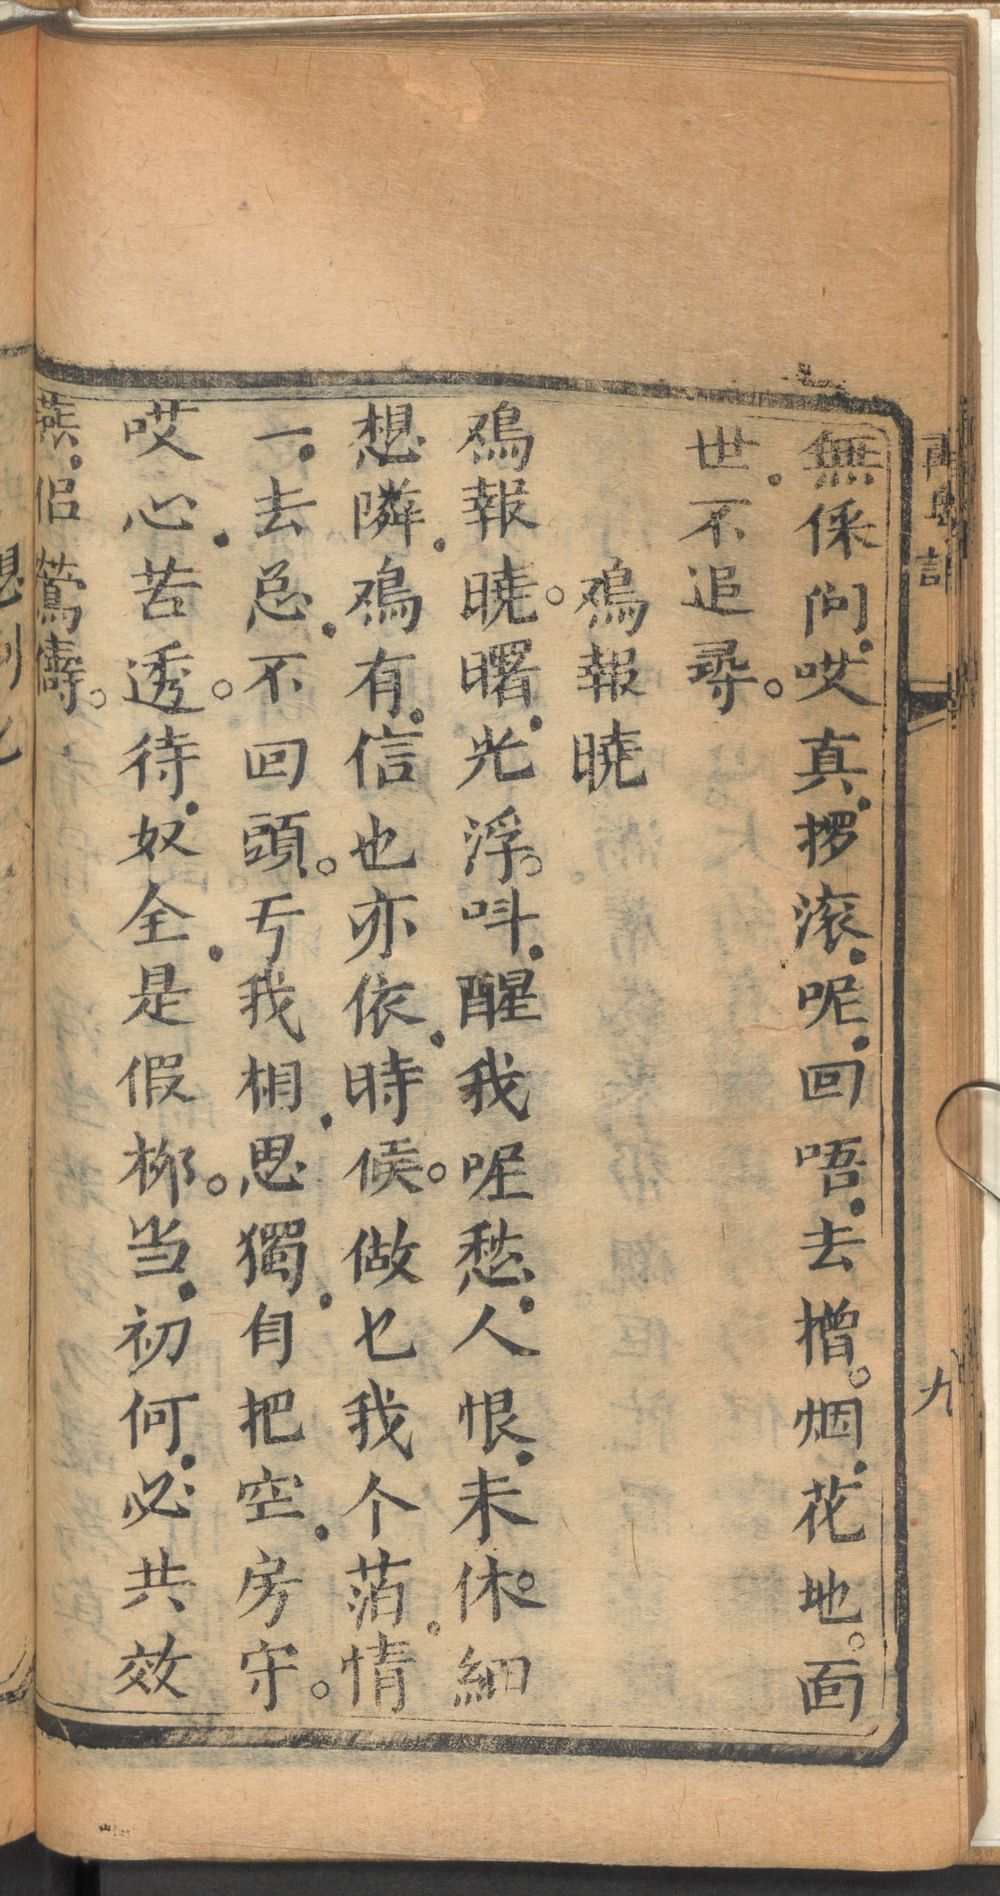 無保问哎真拶滚呢回唔去撍烟花地面
世不追尋
鳮報曉
鳮報曉曙光浮叫醒我呢愁人恨未休細
想隣鳮有信也亦依時候做乜我个萡情
一去总不回頭亏我相思獨自把空房守
哎心苦透待奴全是假柳当初何必共效
燕侣鶯儔
九